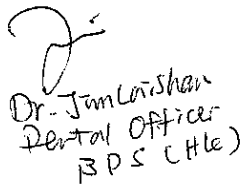 Dr. Jim Laishan
Dental Officer
BDS (HLE)